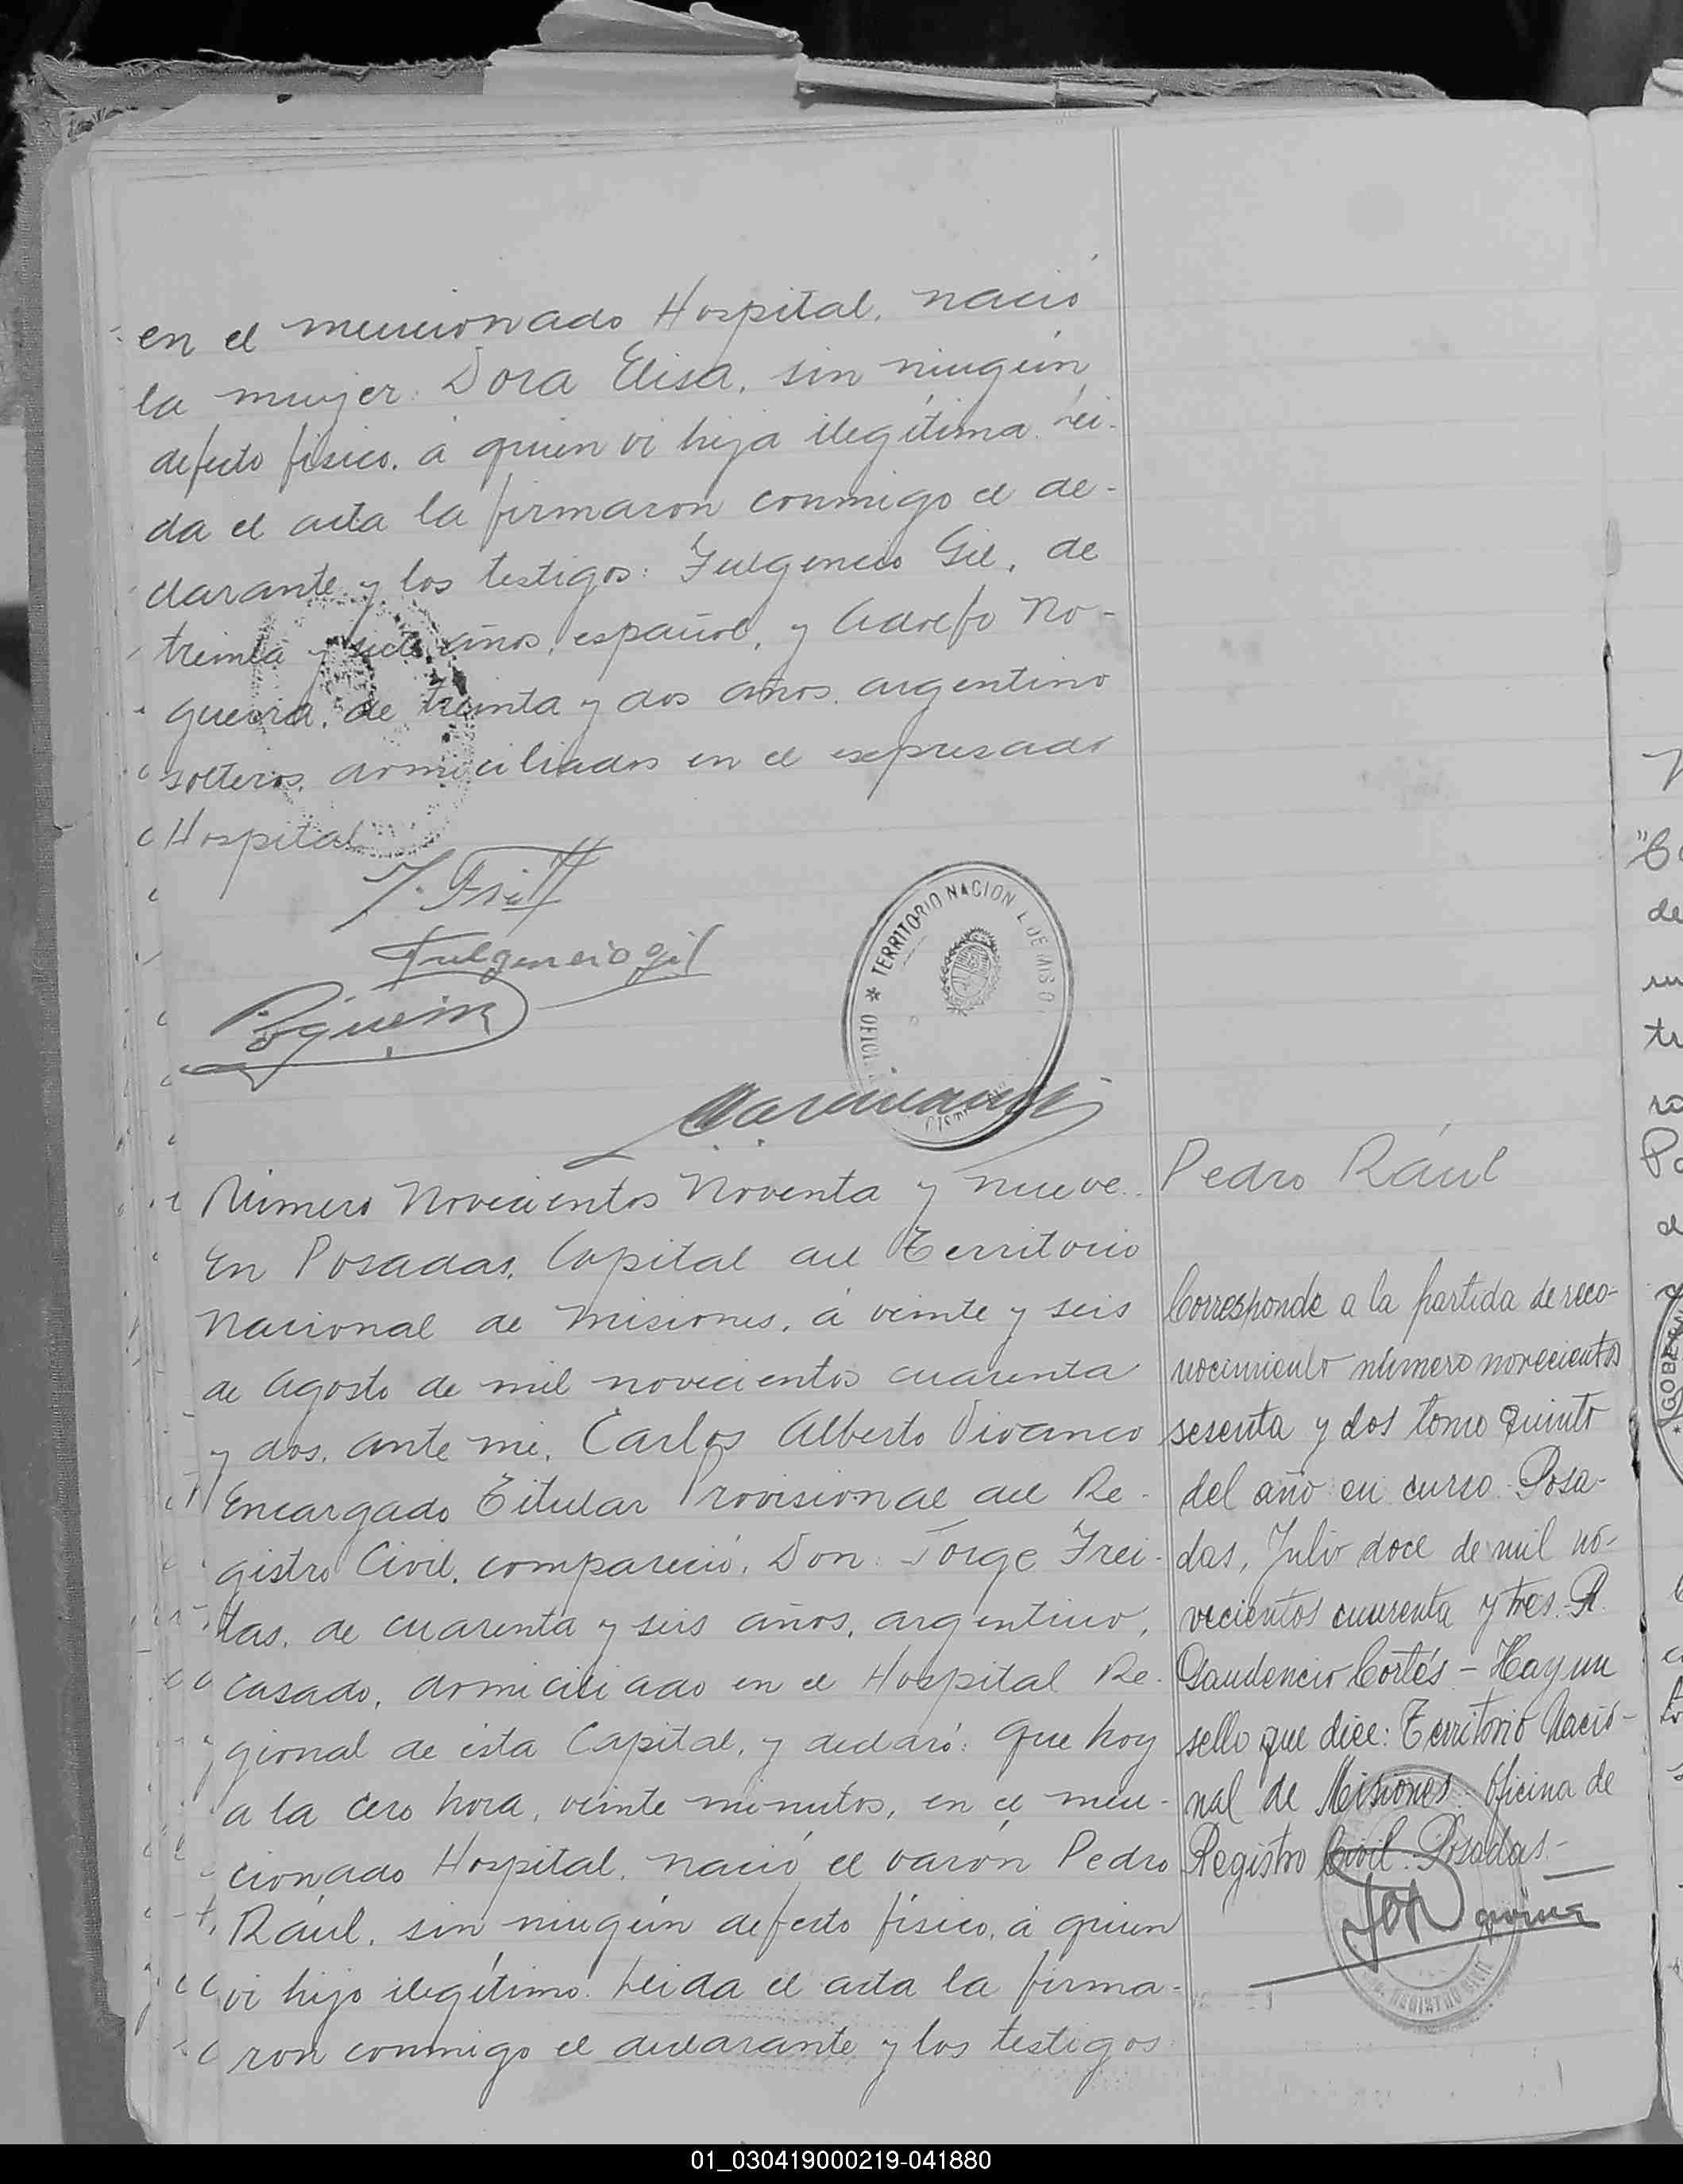 en el mencionado Hospital, nació
la mujer: Dora Elisa, sin ningún
defecto físico, á quien vi hija ilegítima. Leí-
da el acta la firmaron conmigo el de-
clarante y los testigos: Fulgencio Gil, de
treinta y siete años, español, y Adolfo No-
gueira, de treinta y dos años, argentino
solteros, domiciliados en el expresado
Hospital
Fulgencio Gil
TERRITORIO NACION L DE MISIO
Número Novecientos Noventa y nueve.
En Posadas, Capital del Territorio
Nacional de Misiones, á veinte y seis
de Agosto de mil novecientos cuarenta
y dos, ante mi, Carlos Alberto Vivanco
Encargado Titular Provisional del Re-
gistro Civil, compareció, Don: Jorge Frei-
tas, de cuarenta y seis años, argentino,
casado, domiciliado en el Hospital Re-
gional de ésta Capital, y declaró: Que hoy
a la cero hora, veinte minutos, en el men-
cionado Hospital, nació el varón Pedro
Rául, sin ningún defecto físico, á quien
vi hijo ilegítimo. Leída el acta la firma-
ron conmigo el declarante y los testigos
Pedro Rául
Corresponde a la partida de reco-
nocimiento número novecientos
sesenta y dos tomo quinto
del año en curso. Posa-
das, Julio doce de mil no-
vecientos cuarenta y tres. R.
Gaudencio Cortés - Hay un
sello que dice: Territorio Nacio-
nal de Misiones. Oficina de
Registro Civil. Posadas.-
REGISTRO CIVIL
GOBE
01_030419000219-041880